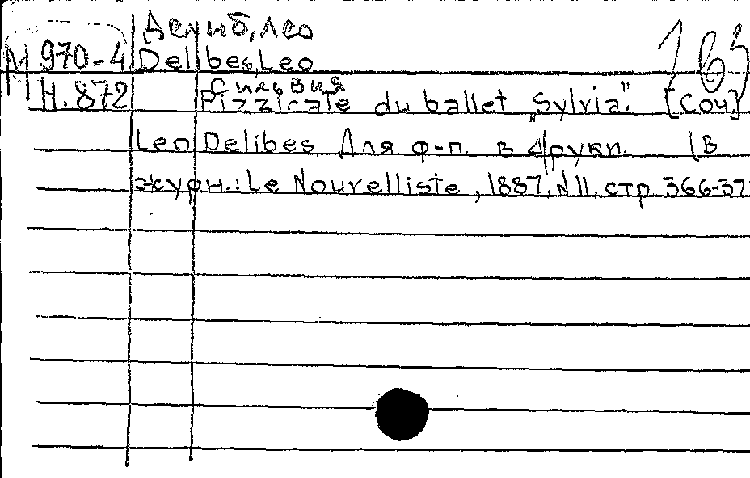 Делиб, Лео
М 970-4 Delibes, Leo
Н. 872 Сильвия
Pizzicate du ballet „Sylvia." [Соч]
Leo Delibes Для ф-п. в 4 руки. (В
журн.: Le Nouvelliste, 1887, N11, стр 366-37
163